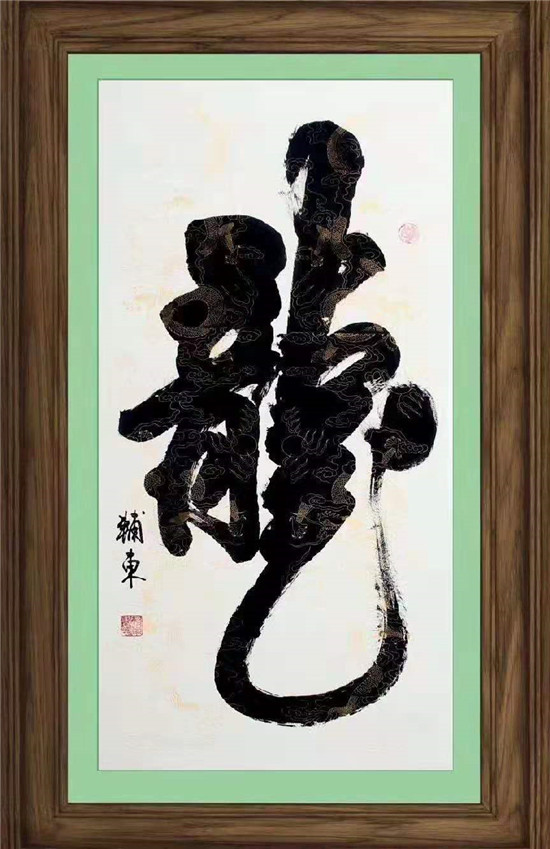 龍
輔東